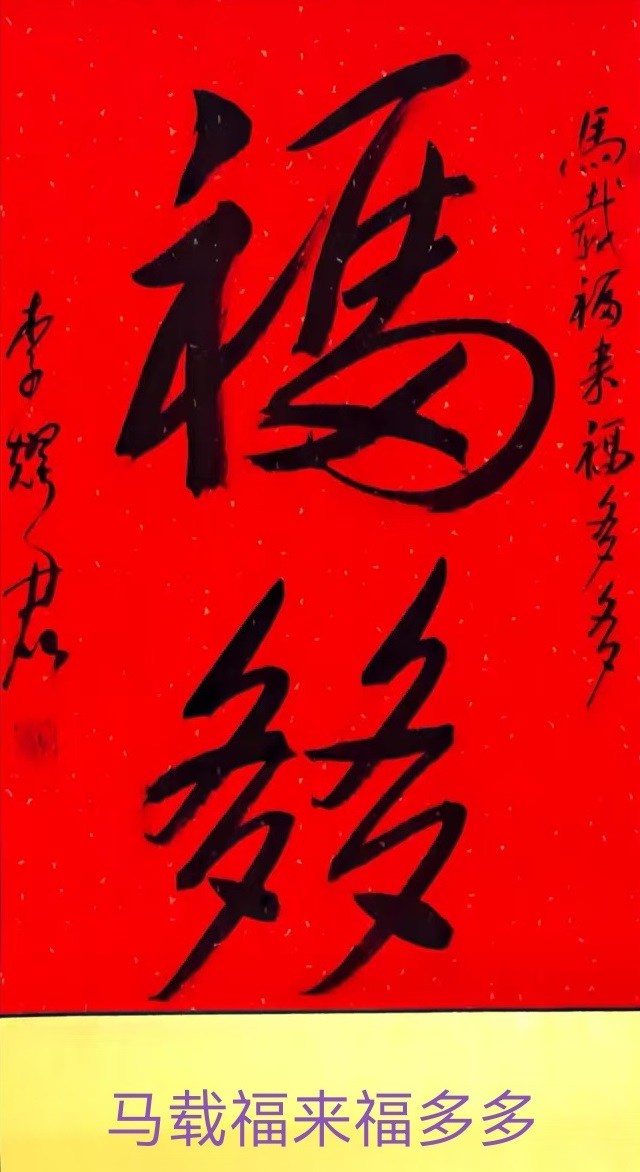 馬載福来福多多
福
多多
李耀君
马载福来福多多